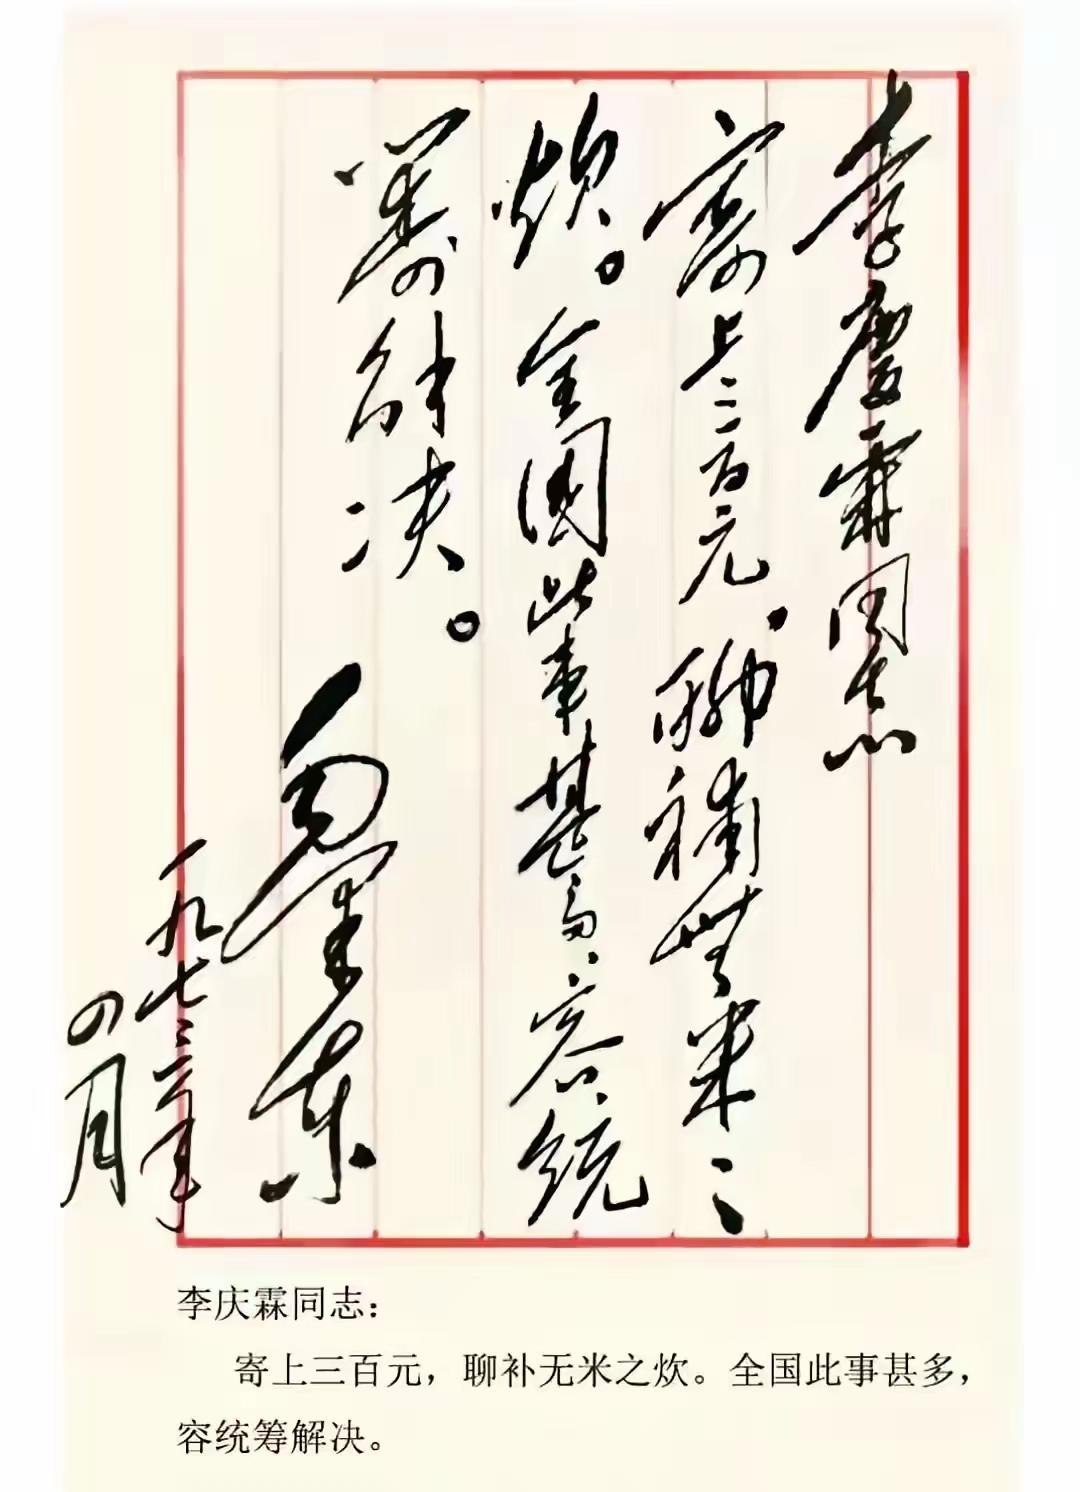 李庆霖同志
寄上三百元,聊补无米之
炊。全国此事甚多,容统
筹解决。
毛泽东
一九七三年
四月
李庆霖同志:
寄上三百元,聊补无米之炊。全国此事甚多,
容统筹解决。